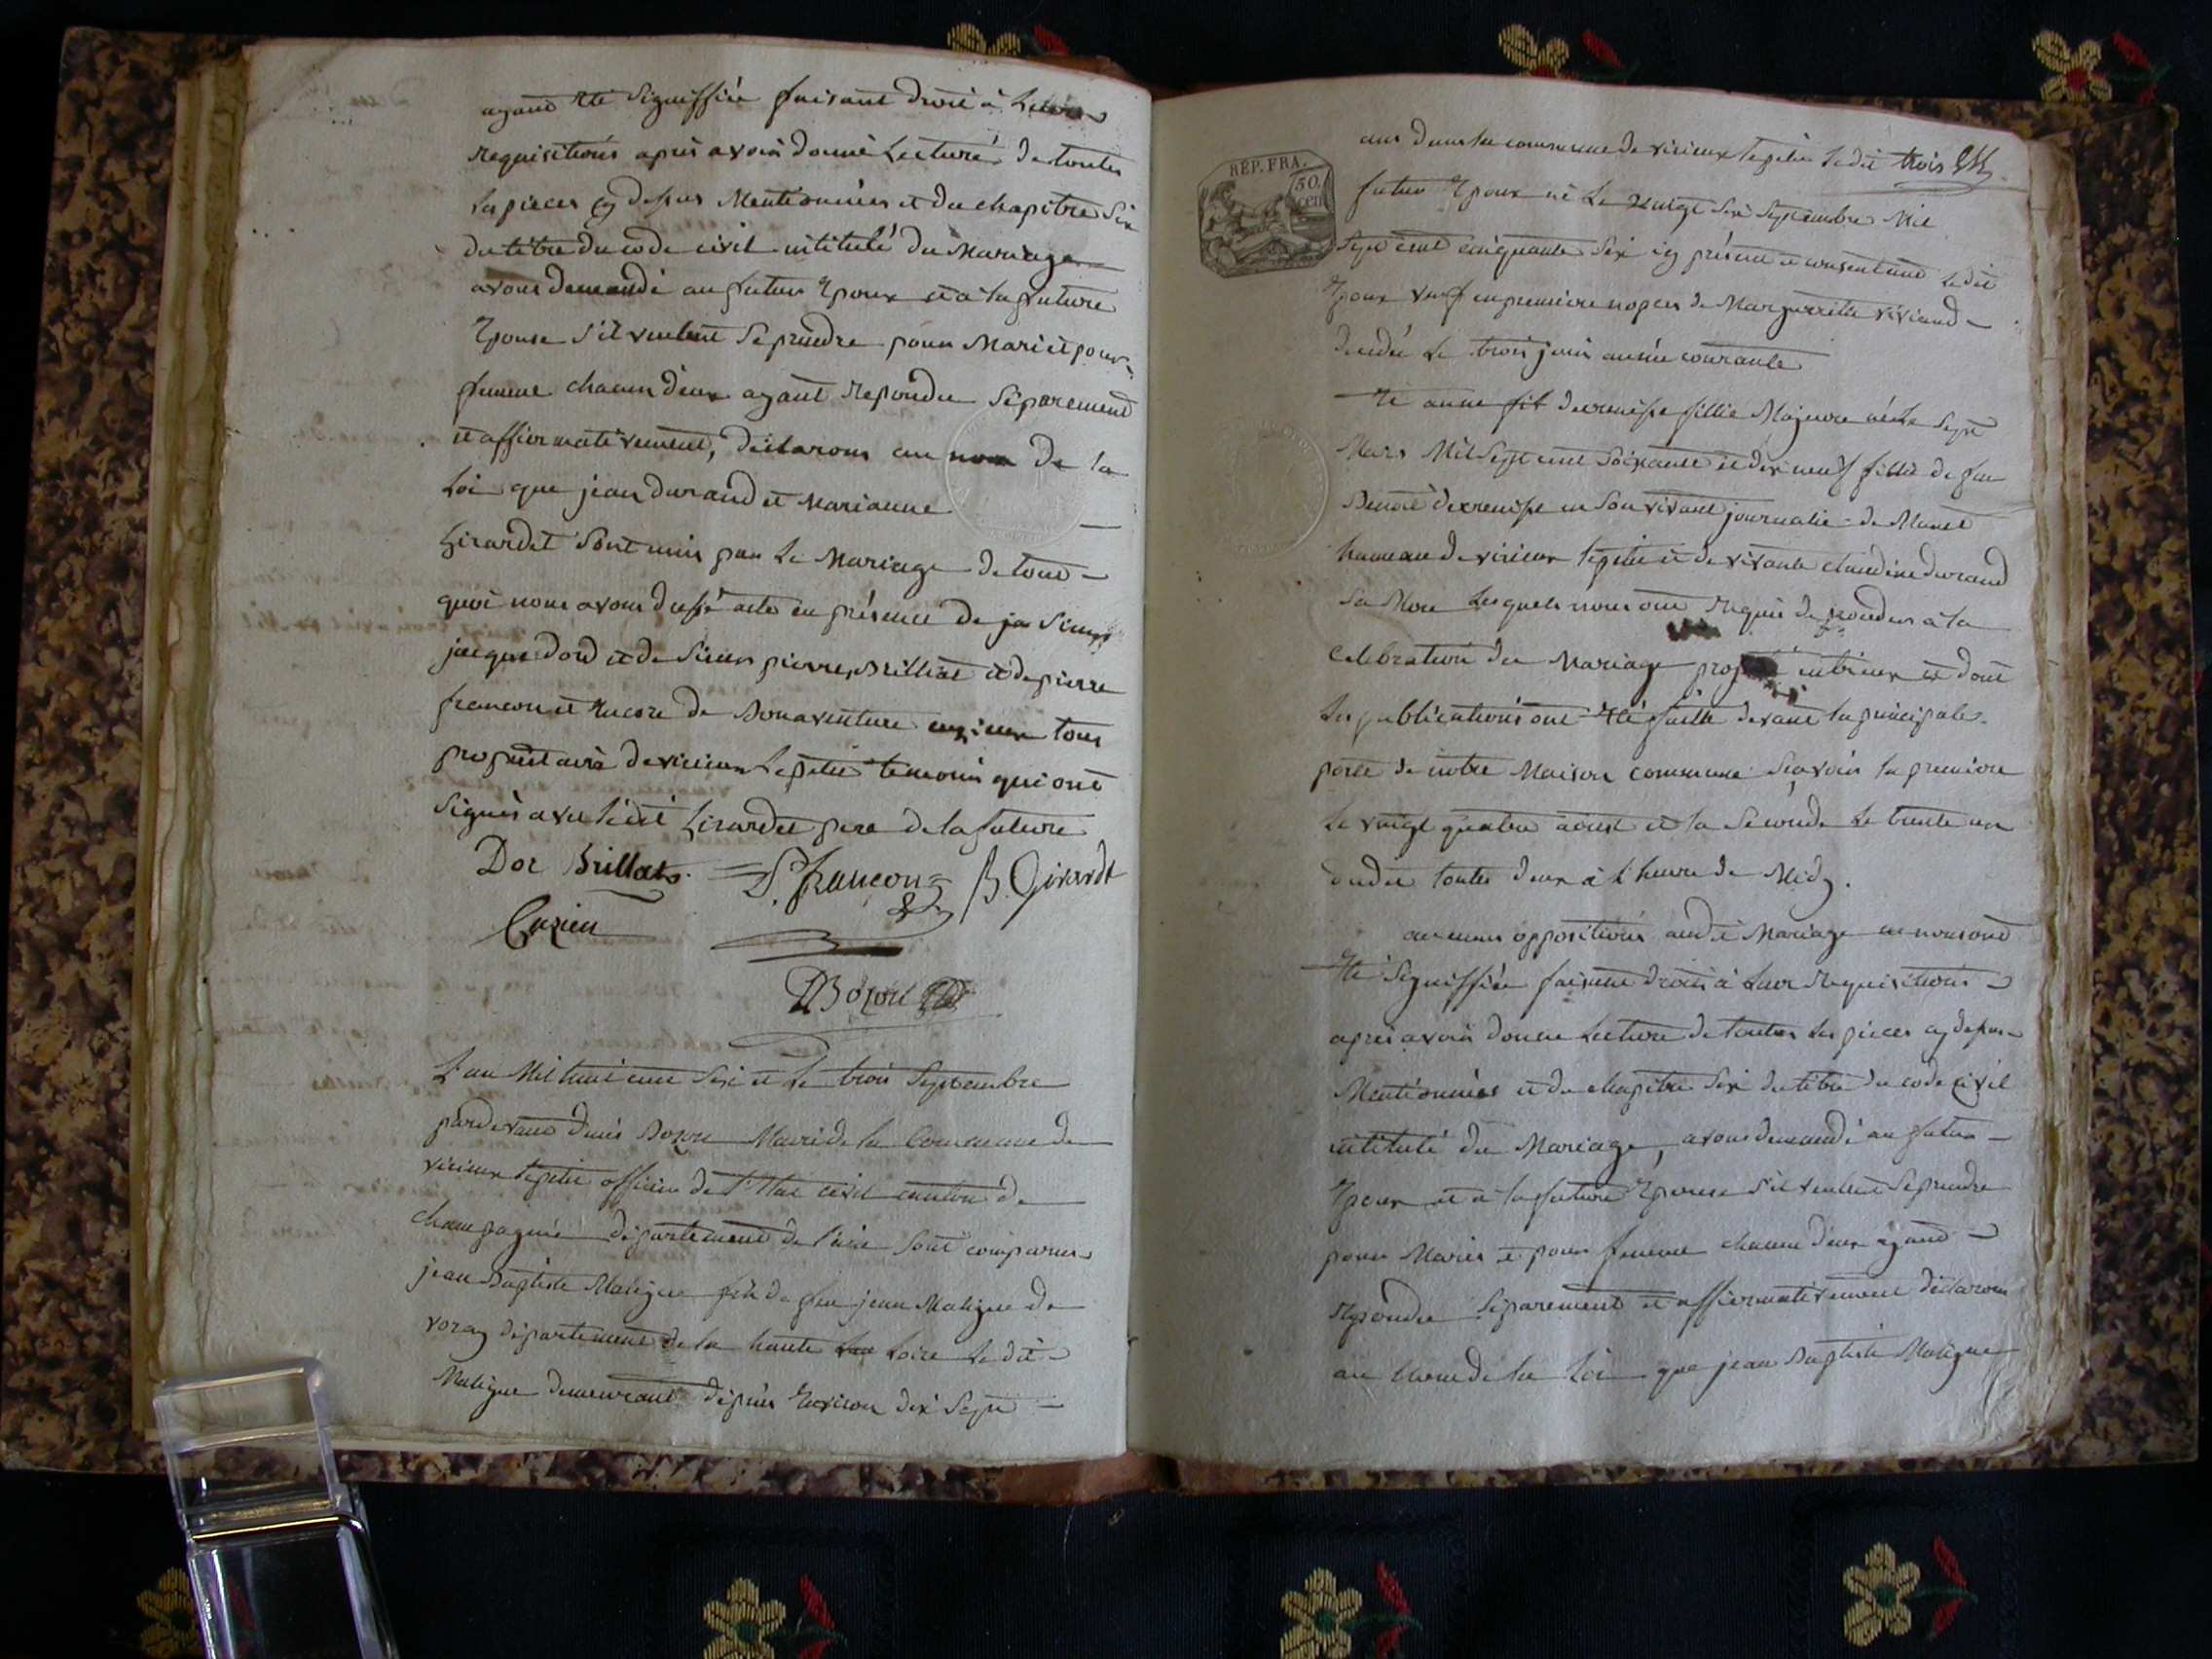 ayant été signiffiée faisant droit à Leurs
requisitions après avoir donné Lecture de toutes
les pieces cy dessus Mentionnées et du chapitre six
du titre du code civil intitulé du Mariage
avons demandé au futur Epoux et à la future
Epouse s'il veulent se prendre pour Mari et pour
femme chacun d'eux ayant repondu séparement
et affirmativement, déclarons au nom de la
Loi que jean durand et Marianne
Girardet sont unis par Le Mariage de tout
quoi nous avons dressé acte en présence de sieur
jacque dord et de sieur pierre Brilliat et de pierre
francon et encore de Bonaventure cuzieux tous
propriétaire de virieux Lepetit temoins qui ont
signés avec ledit Girardet pere de la future
Dor Brillat P. francon B. Girardt
Cuzieu
D Bozon
L'an Mil huit cent six et Le trois septembre
pardevant denis Bozon Maire de la Commune de
virieux lepetit officier de l'Etat civil canton de
champagne département de l'ain sont comparus
jean Baptiste Maligue fils de feu jean Maligue de
voray département de la haute Loire Le dit
Maligue demeurant depuis Environ dix sept
ans dans la commune de virieux lepetit ledit trois
REP. FRA.
50.
cen
futur Epoux né Le vingt six septembre Mil
sept cent cinquante six icy présent et consentant Ledit
Epoux veuf en premiere nopces de Margueritte viviand
decedée Le trois juin année courante
et anne decrenisse fillie Majeure née Le sept
Mars Mil sept cent soixante et dix neuf fillie de feu
Benoit decrenisse en son vivant journalie de
hameau de virieux lepetit et de vivante claudine durand
sa Mere Lesquels nous ont requis de procéder à la
celebration du Mariage projetté entr'eux et dont
Les publications ont été faitte devant la principale
porte de notre Maison commune sçavoir la premiere
Le vingt quatre aoust et la seconde Le trente un
dudit toutes deux à l'heure de Midy.
aucunes oppositions audit Mariage ne nous ont
été signiffiée faisant droit à Leur requisitions
après avoir donné Lecture de toutes Les pieces cy dessus
Mentionnées et du chapitre six du titre du code civil
intitulé du Mariage, avons demandé au futur
Epoux et à la future Epouse s'il veullent se prendre
pour Maris et pour femme chacun d'eux ayant
repondu séparement et affirmativement déclarons
au Nom de la Loi que jean Baptiste Maligue